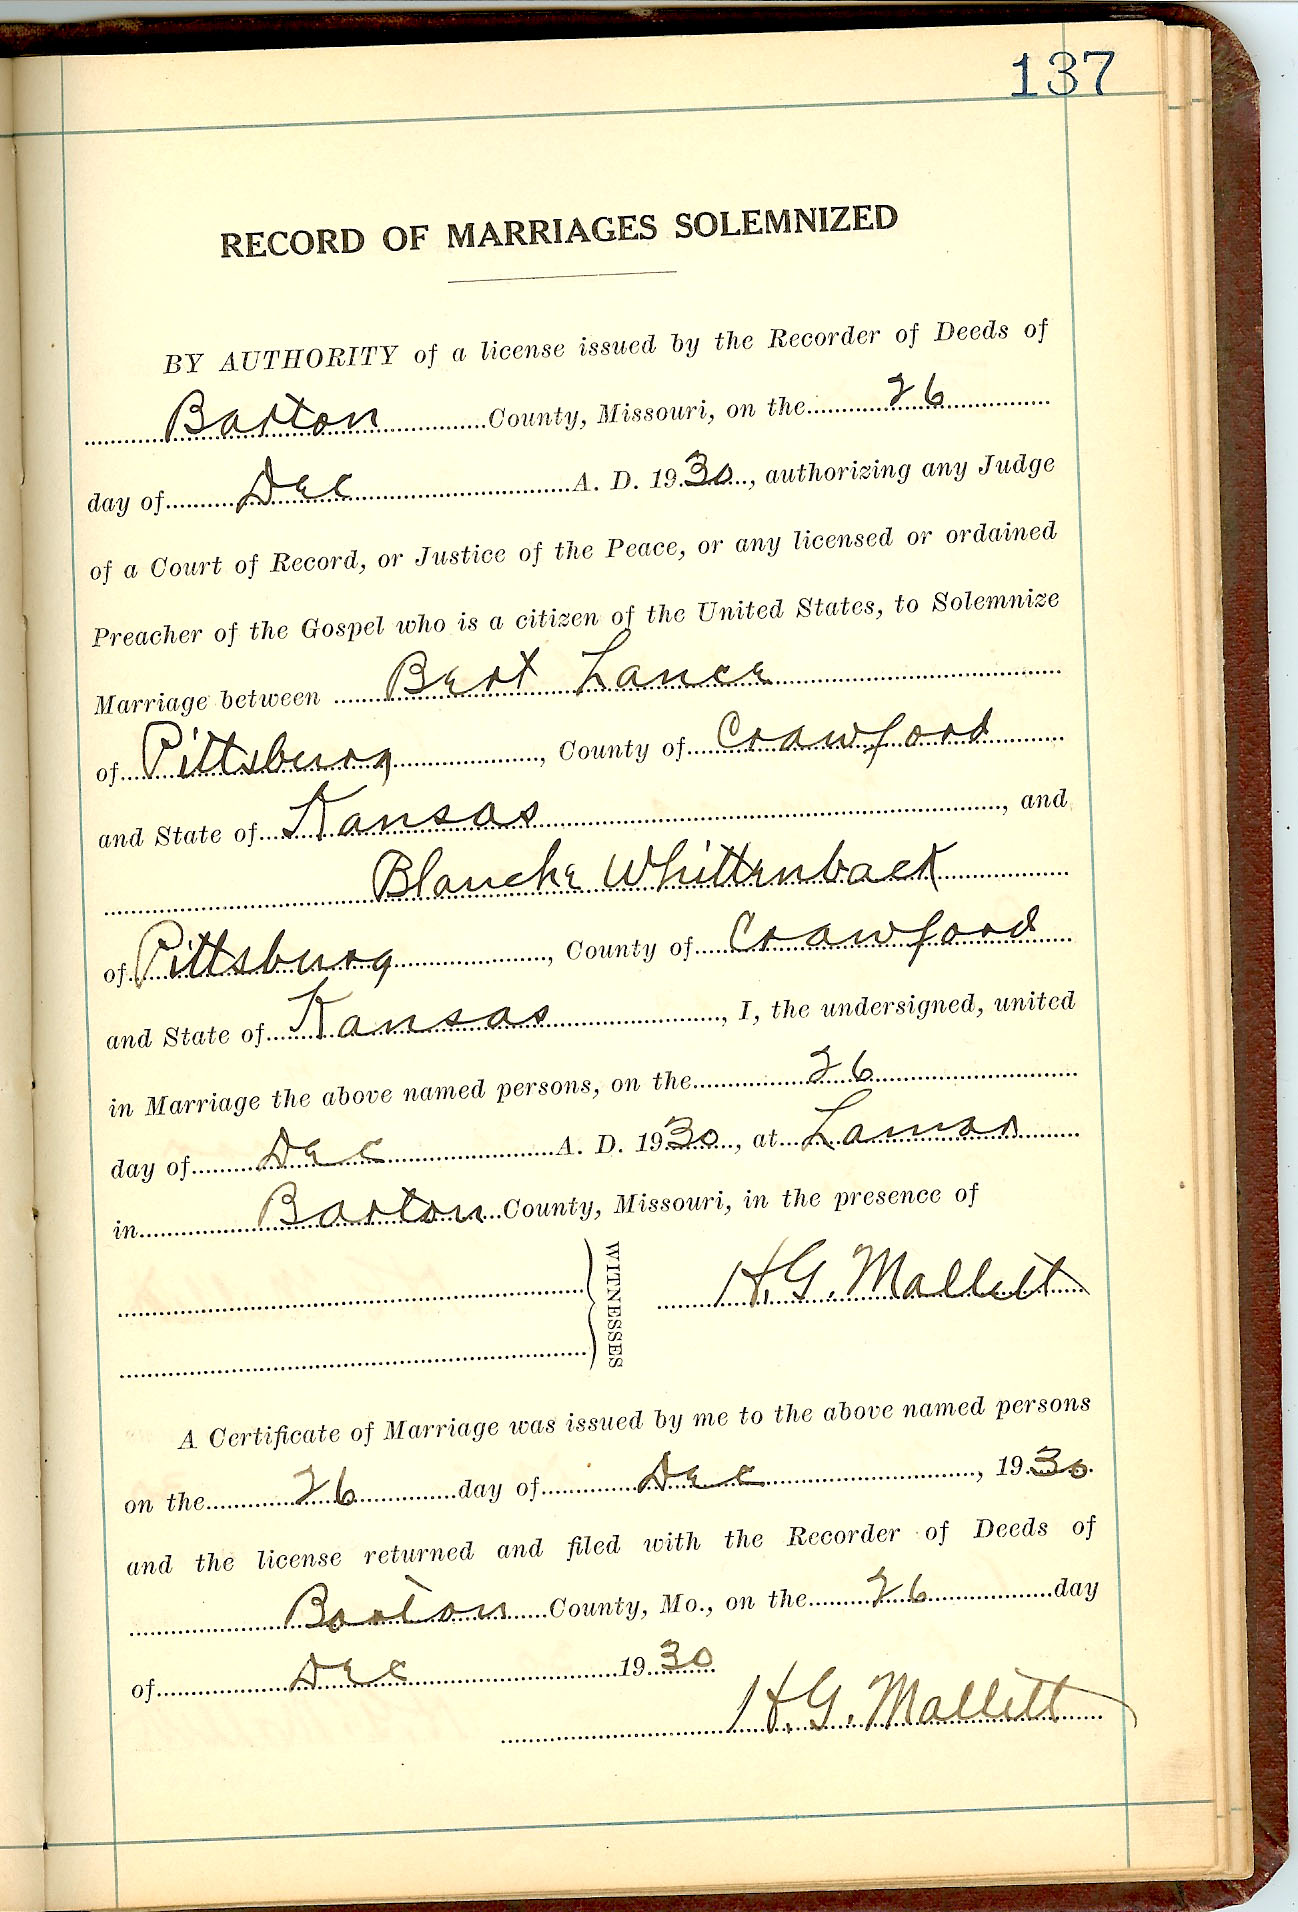 137
RECORD OF MARRIAGES SOLEMNIZED
BY AUTHORITY of a license issued by the Recorder of Deeds of
Barton County, Missouri, on the 26
day of Dec A. D. 1930, authorizing any Judge
of a Court of Record, or Justice of the Peace, or any licensed or ordained
Preacher of the Gospel who is a citizen of the United States, to Solemnize
Marriage between Bert Lance
of Pittsburg, County of Crawford
and State of Kansas, and
Blanche Whittenback
of Pittsburg, County of Crawford
and State of Kansas, I, the undersigned, united
in Marriage the above named persons, on the 26
day of Dec A. D. 1930, at Lamar
in Barton County, Missouri, in the presence of
WITNESSES H.G. Mallett
A Certificate of Marriage was issued by me to the above named persons
on the 26 day of Dec, 1930
and the license returned and filed with the Recorder of Deeds of
Barton County, Mo., on the 26 day
of Dec 1930
H.G. Mallett